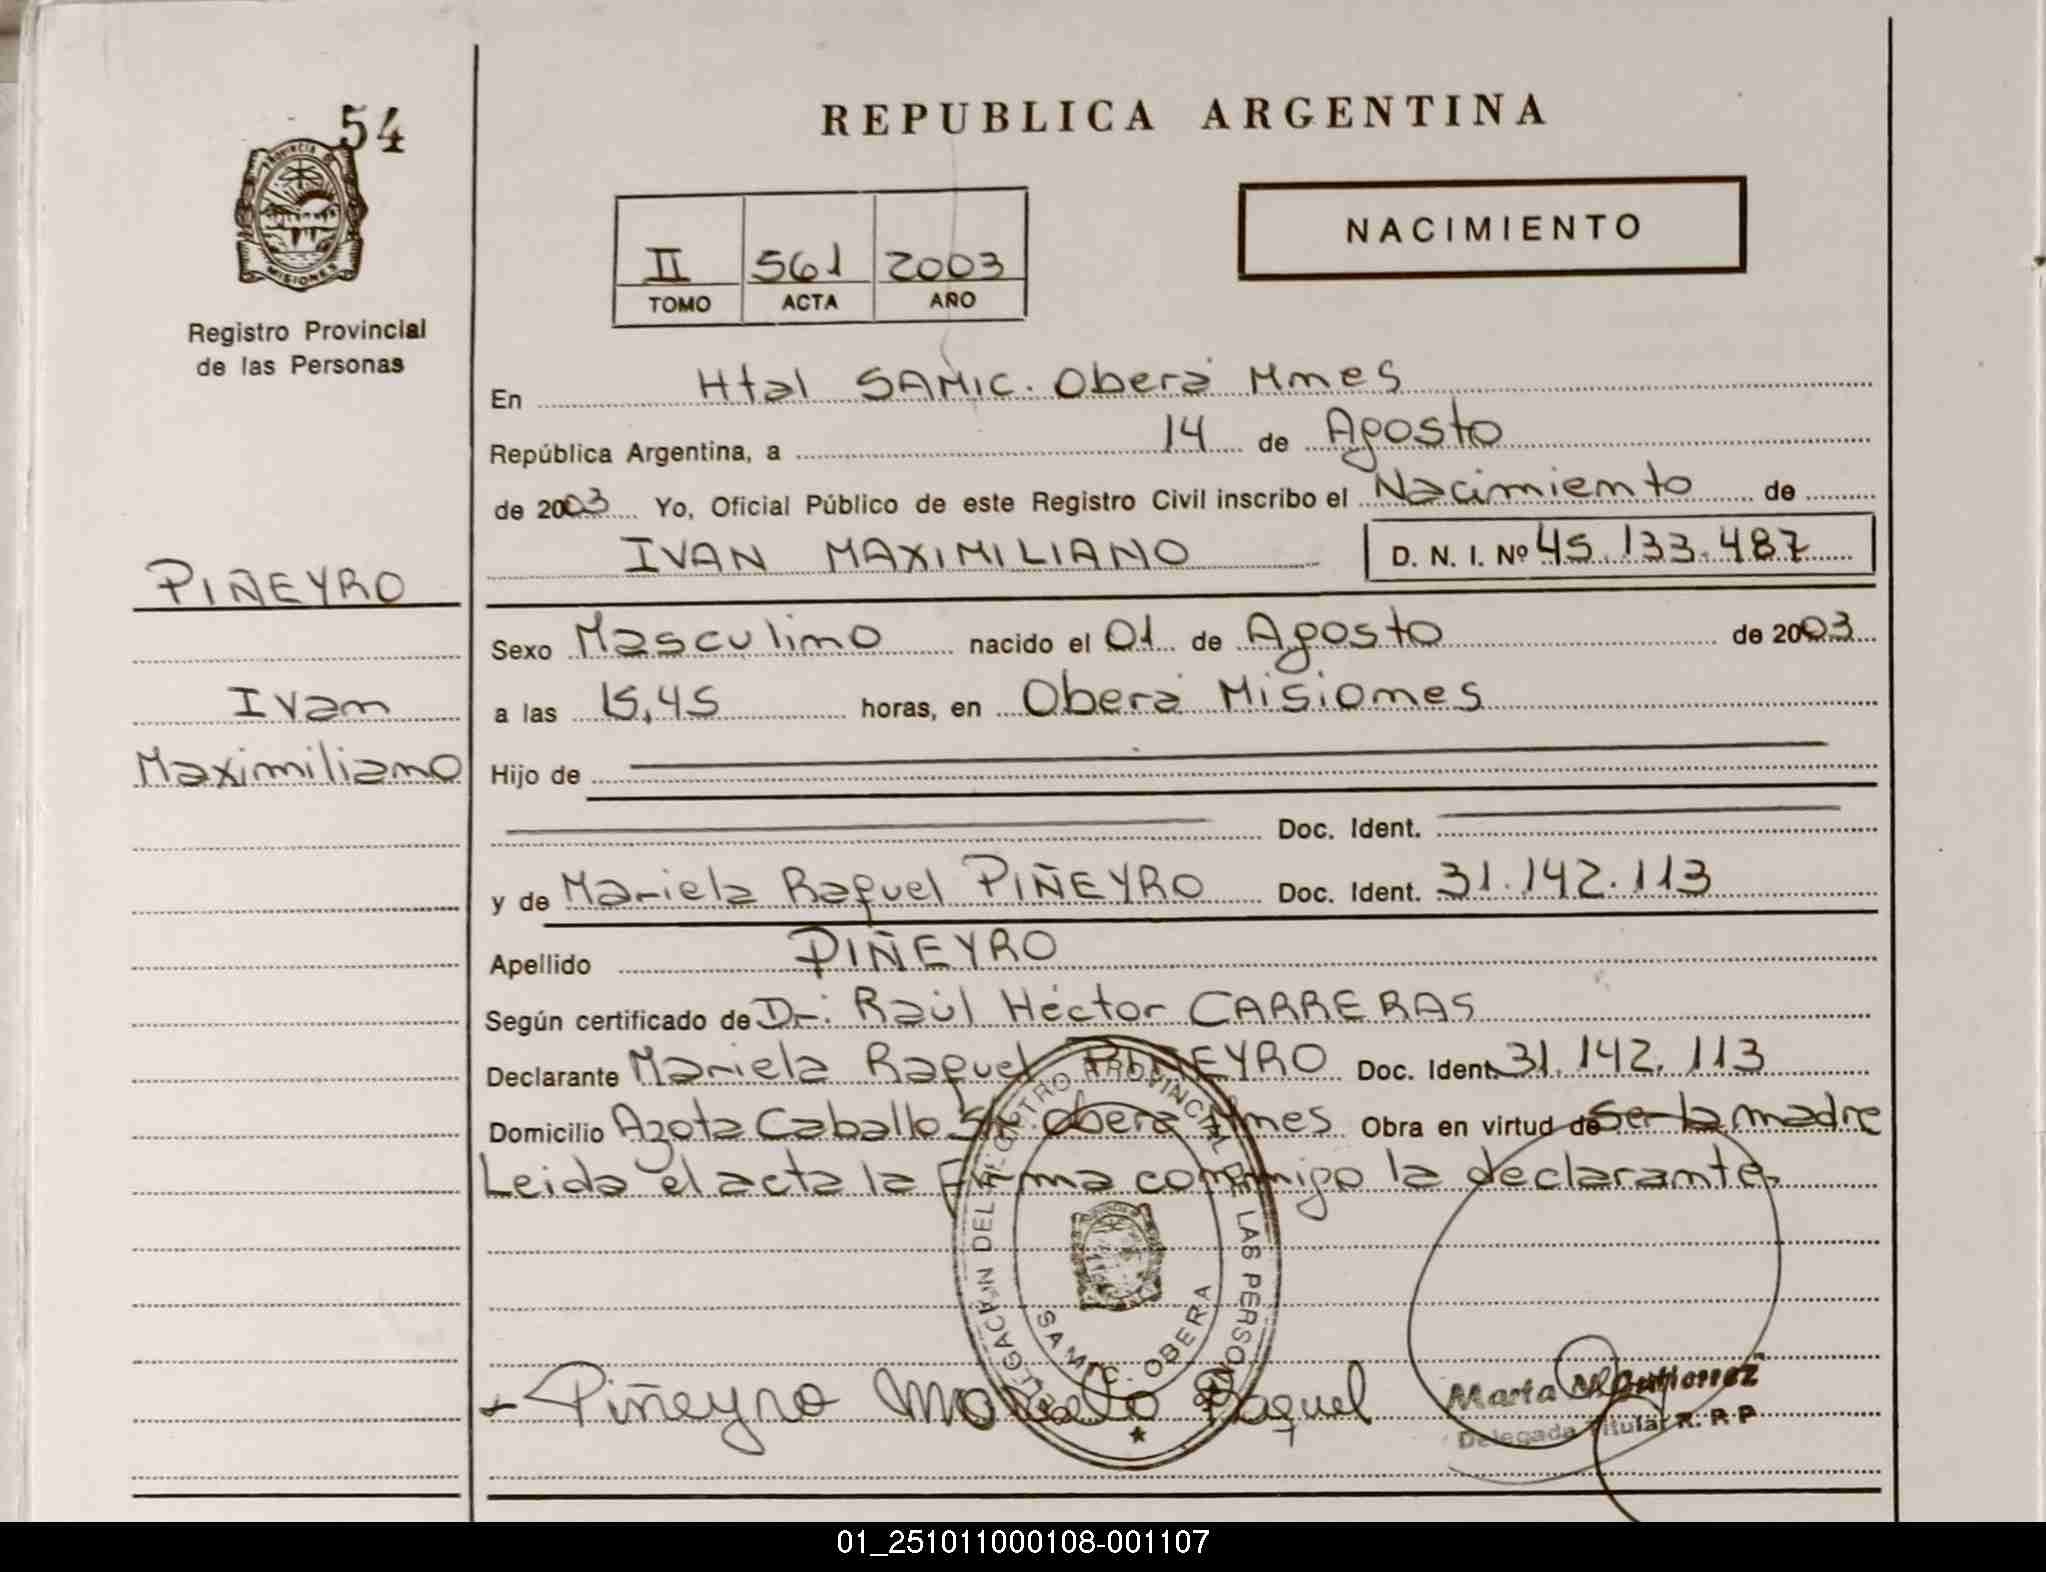 54
PROVINCIA DE
MISIONES
Registro Provincial
de las Personas
PIÑEYRO
Ivan
Maximiliano
REPUBLICA ARGENTINA
II 561 2003
TOMO ACTA AÑO
NACIMIENTO
En Htal SAMIC. Oberá Mnes
República Argentina, a 14 de Agosto
de 2003 Yo, Oficial Público de este Registro Civil inscribo el Nacimiento de
IVAN MAXIMILIANO D. N. I. Nº 45.133.487
Sexo Masculino nacido el 01 de Agosto de 2003
a las 15,45 horas, en Oberá Misiones
Hijo de
Doc. Ident.
y de Mariela Raquel PIÑEYRO Doc. Ident. 31.142.113
Apellido PIÑEYRO
Según certificado de Dr. Raúl Héctor CARRERAS
Declarante Mariela Raquel PIÑEYRO Doc. Ident. 31.142.113
Domicilio Azota Caballo S/N Oberá Mnes Obra en virtud de Ser la madre
Leida el acta la Firma conmigo la declarante.
DELEGACION DEL REGISTRO PROVINCIAL DE LAS PERSONAS
SAMIC. OBERA
Piñeyro Mariela Raquel
Marta Gutierrez
Delegada Titular R. P. P
01_251011000108-001107